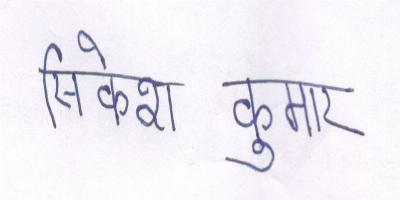 सिकेश कुमार